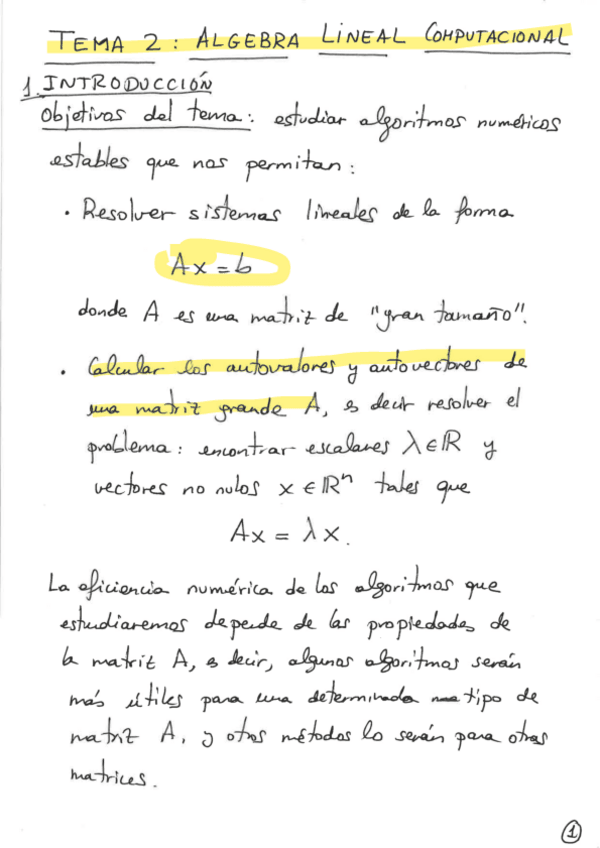 TEMA 2: ALGEBRA LINEAL COMPUTACIONAL
1. INTRODUCCIÓN
Objetivos del tema: estudiar algoritmos numéricos
estables que nos permitan:
• Resolver sistemas lineales de la forma
Ax = b
donde A es una matriz de "gran tamaño".
• Calcular los autovalores y autovectores de
una matriz grande A, es decir resolver el
problema: encontrar escalares λ ∈ ℝ y
vectores no nulos x ∈ ℝⁿ tales que
Ax = λx.
La eficiencia numérica de los algoritmos que
estudiaremos depende de las propiedades de
la matriz A, es decir, algunos algoritmos serán
más útiles para una determinado tipo de
matriz A, y otros métodos lo serán para otras
matrices.
1